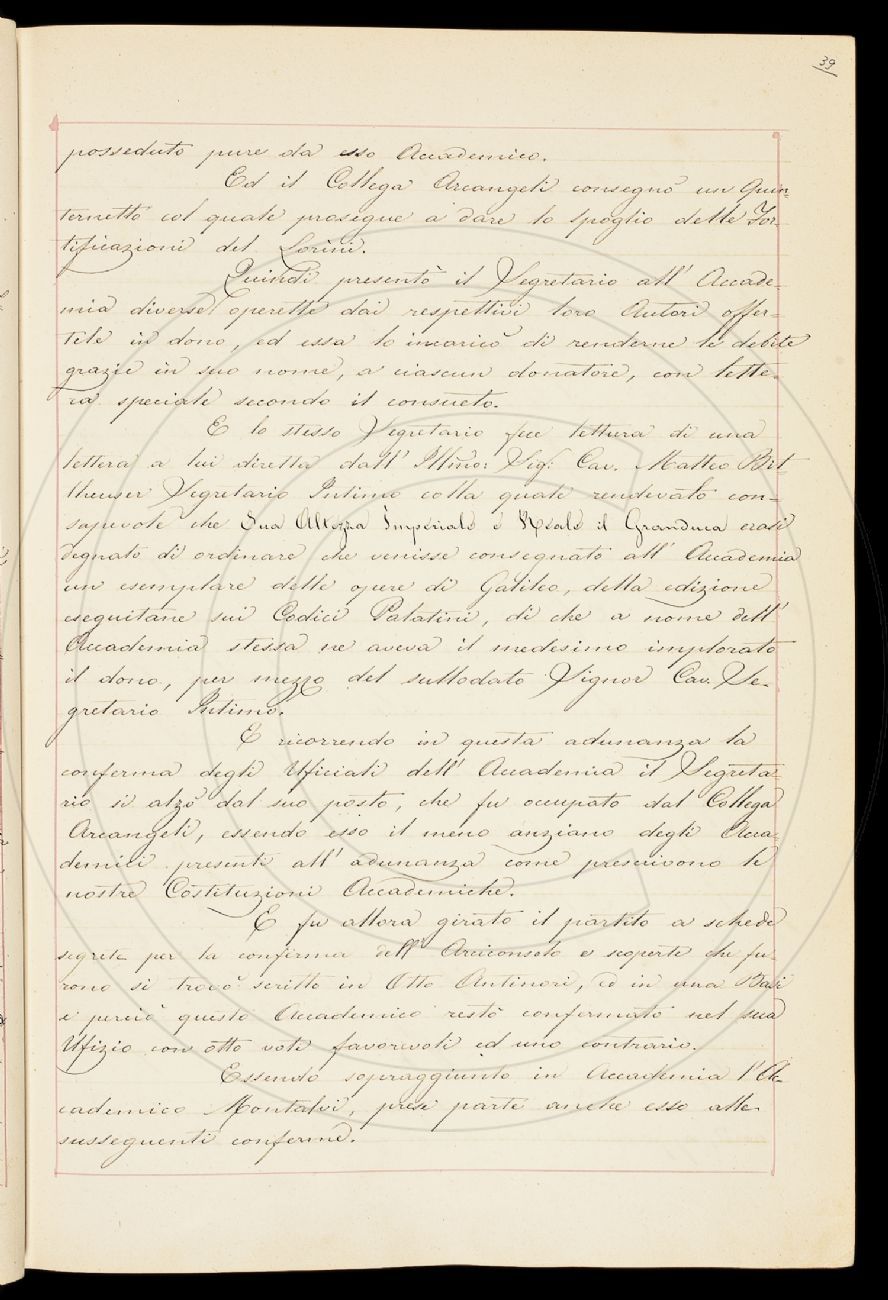 39
posseduto pure da esso Accademico.
Ed il Collega Arcangeli consegnò un Quin=
ternetto col quale prosegue a dare lo spoglio delle For-
tificazioni del Lorini.
Quindi presentò il Segretario all' Accade=
mia diverse operette dai respettivi loro Autori offer=
tele in dono, ed essa lo incaricò di renderne le debite
grazie in suo nome, a ciascun donatore, con lette-
ra speciale secondo il consueto.
E lo stesso Segretario fece lettura di una
lettera a lui diretta dall' Illmo: Sig: Cav. Matteo Bit-
theuser Segretario Intimo colla quale rendevalo con=
sapevole che Sua Altezza Imperiale e Reale il Granduca erasi
degnato di ordinare che venisse consegnato all' Accademia
un esemplare delle opere di Galileo, della edizione
eseguitane sui Codici Palatini, di che a nome dell'
Accademia stessa ne aveva il medesimo implorato
il dono, per mezzo del sullodato Signor Cav. Se-
gretario Intimo.
E ricorrendo in questa adunanza la
conferma degli Uficiali dell' Accademia il Segreta-
rio si alzò dal suo posto, che fu occupato dal Collega
Arcangeli, essendo esso il meno anziano degli Acca-
demici presenti all' adunanza come prescrivono le
nostre Costituzioni Accademiche.
E fu allora girato il partito a schede
segrete per la conferma dell' Arciconsolo e scoperte che fu-
rono si trovò scritto in Otto Antinori, ed in una Basi
e perciò questo Accademico restò confermato nel suo
Ufizio con otto voti favorevoli ed uno contrario.
Essendo sopraggiunto in Accademia l' Ac-
cademico Montalvi, prese parte anche esso alle
susseguenti conferme.